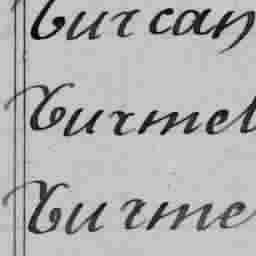 Burcan
Burmel
Burme